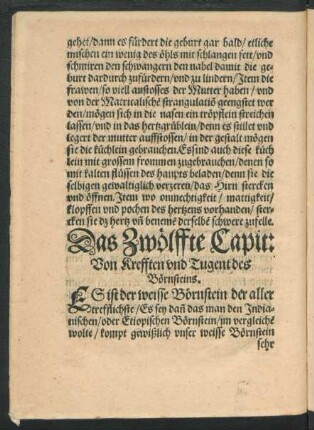 gehet/dann es fürdert die geburt gar bald/etliche
mischen ein wenig des öhls mit schlangen fett/vnd
schmiren den schwangern den nabel damit die ge-
burt dardurch zufürdern/vnd zu lindern/Item die
frawen/so viell austosses der Mutter haben/vnd
von der Matricalischē strangulatiō geengstet wer
den/mögen sich in die nasen ein tröpflein streichen
lassen/vnd in das hertzgrüblein/denn es stillet vnd
legert der mutter auffstossen/in der gestalt mögen
sie die küchlein gebrauchen. Es sind auch diese küch
lein mit grossem frommen zugebrauchen/denen so
mit kalten flüssen des haupts beladen/denn sie die
selbigen gewaltiglich verzeren/das Hirn stercken
vnd öffnen. Item wo onmechtigkeit/mattigkeit/
klopffen vnd pochen des hertzens vorhanden/ster-
cken sie dz hertz vñ benemē derselbē schwere zufelle.
Das Zwölffte Capit:
Von Krefften vnd Tugent des
Börnsteins.
ES ist der weisse Börnstein der aller
trefflichste/Es sey daß das man den India-
nischen/oder Etiopischen Börnstein/jm vergleichē
wolte/kompt gewißlich vnser weisse Börnstein
sehr